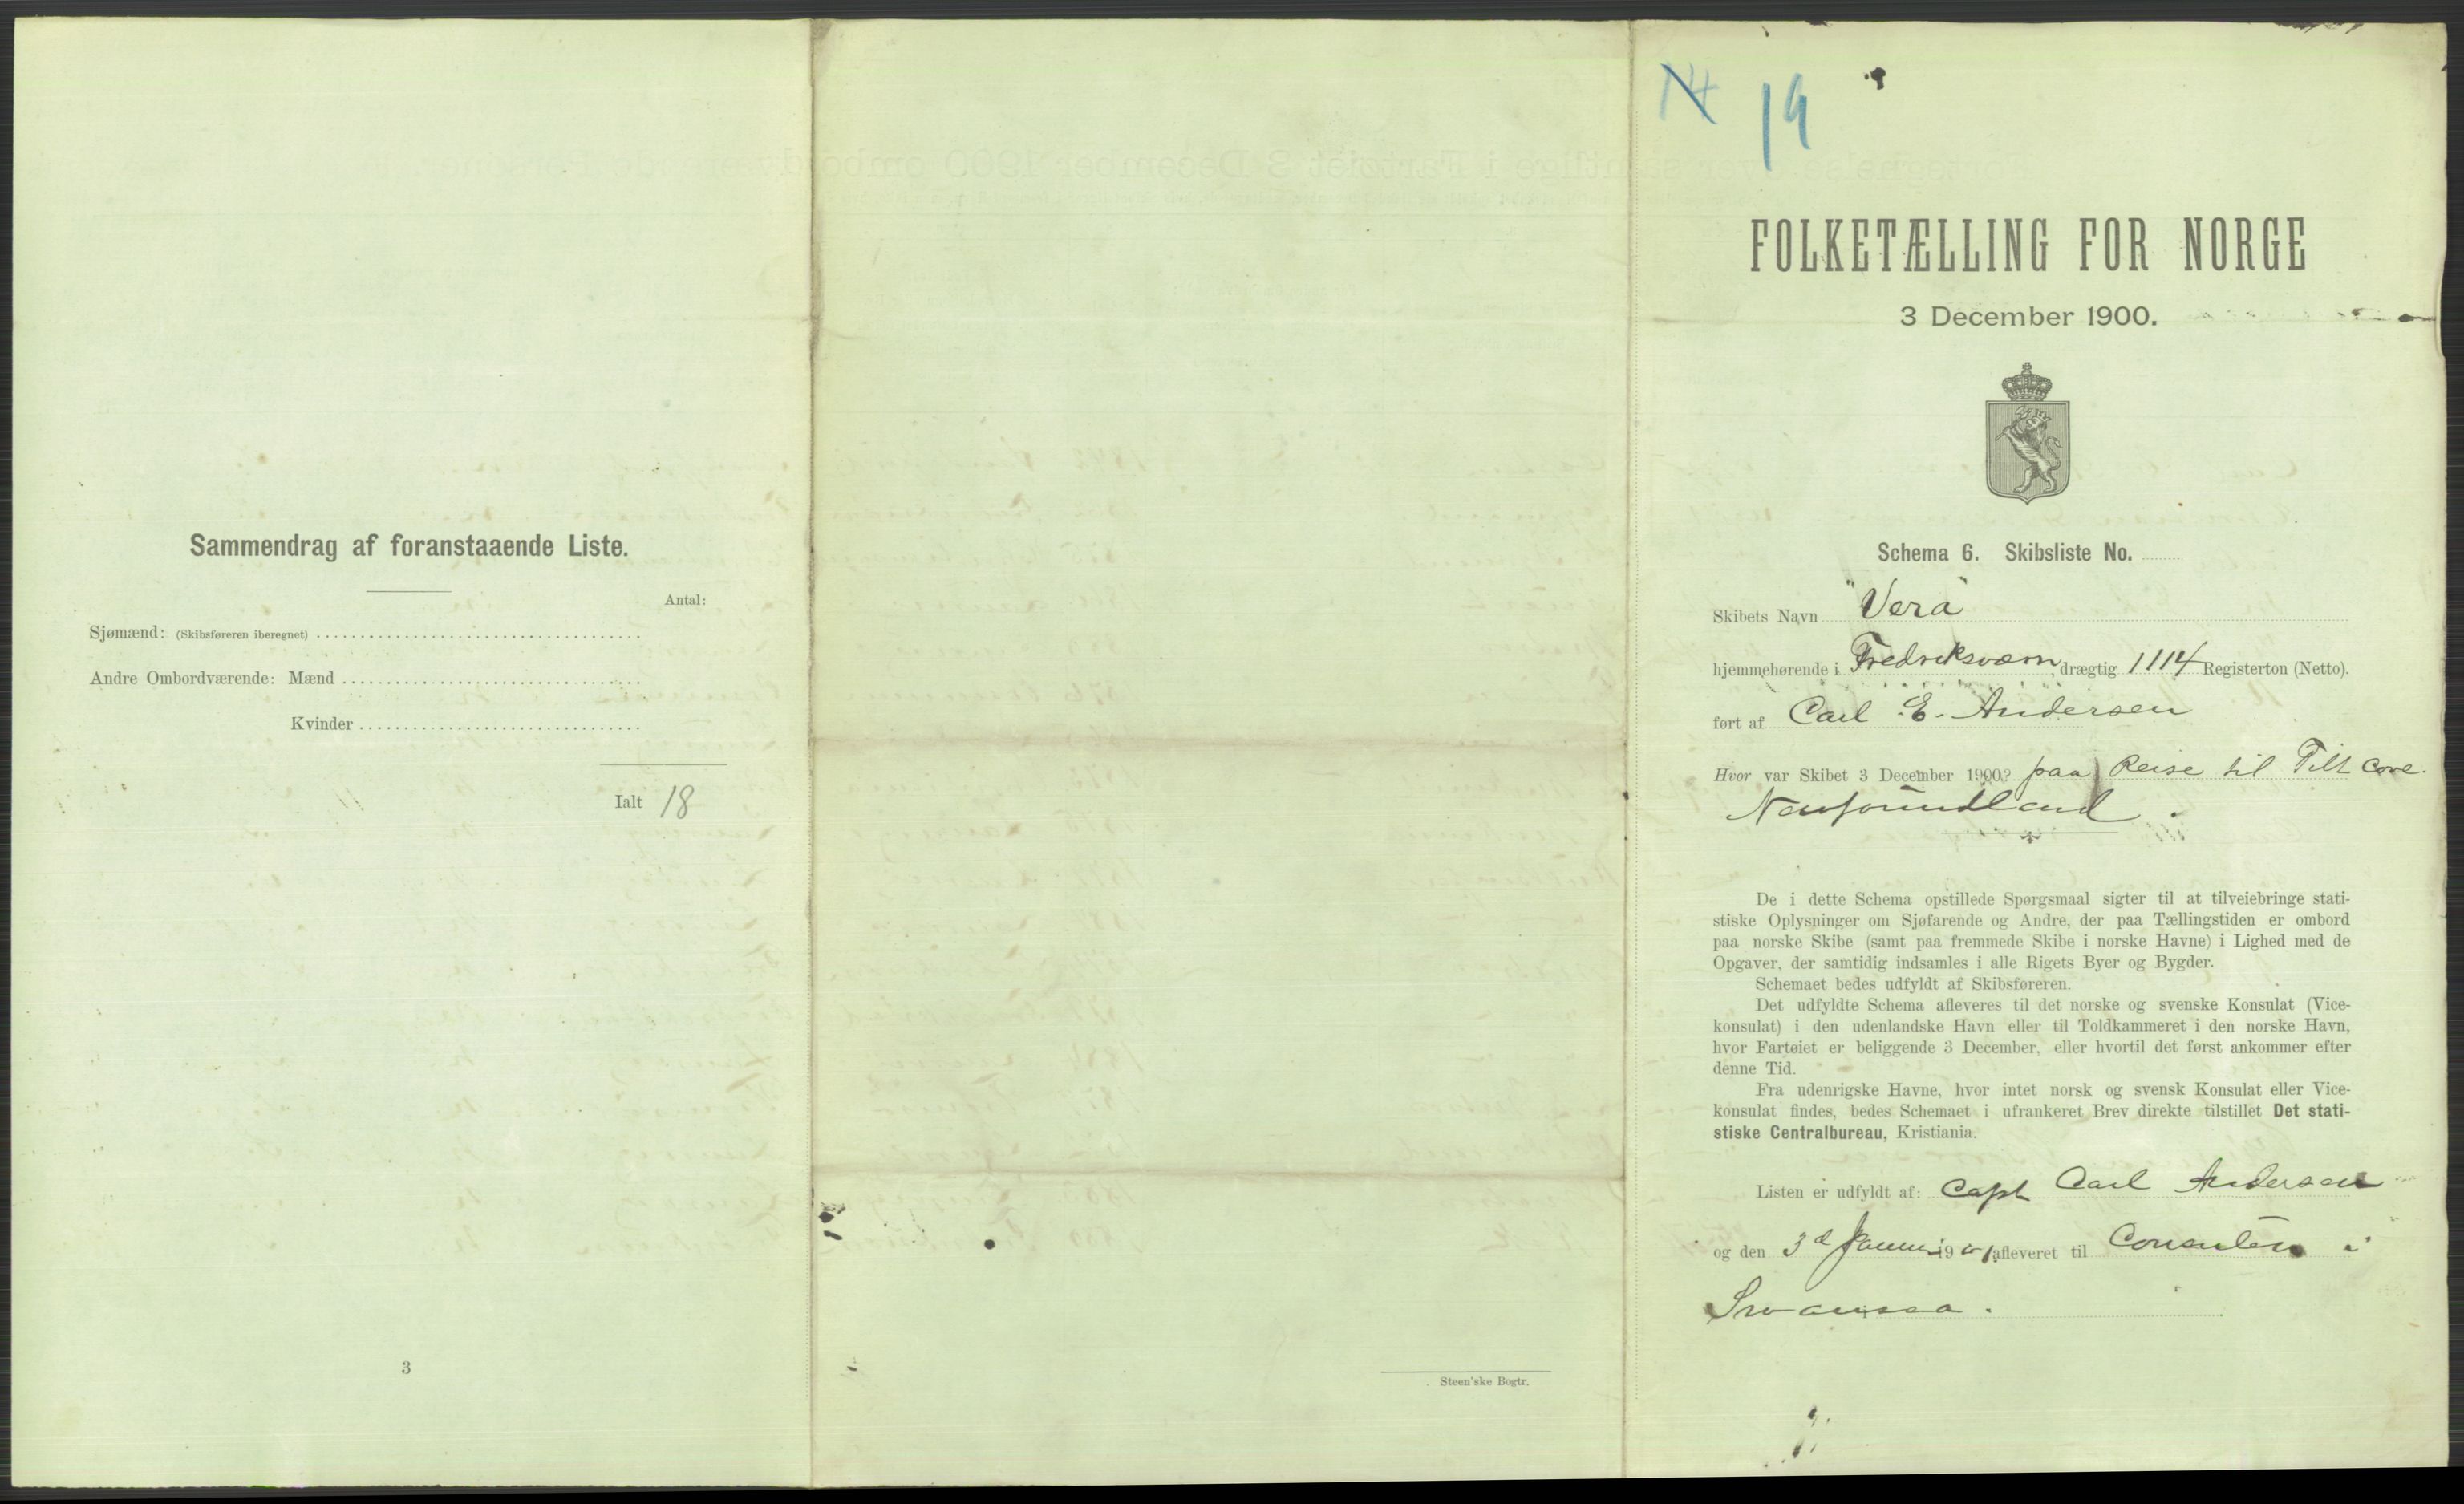 Sammendrag af foranstaaende Liste.
Antal:
Sjømænd: (Skibsføreren iberegnet)
Andre Ombordværende: Mænd
Kvinder
Ialt 18
3
Steen'ske Bogtr.
19
FOLKETÆLLING FOR NORGE
3 December 1900.
Schema 6. Skibsliste No.
Skibets Navn "Vera"
hjemmehørende i Fredriksværn, drægtig 1114 Registerton (Netto).
ført af Carl E. Andersen
Hvor var Skibet 3 December 1900? paa Reise til Tilt Cove.
Newfoundland.
De i dette Schema opstillede Spørgsmaal sigter til at tilveiebringe stati-
stiske Oplysninger om Sjøfarende og Andre, der paa Tællingstiden er ombord
paa norske Skibe (samt paa fremmede Skibe i norske Havne) i Lighed med de
Opgaver, der samtidig indsamles i alle Rigets Byer og Bygder.
Schemaet bedes udfyldt af Skibsføreren.
Det udfyldte Schema afleveres til det norske og svenske Konsulat (Vice-
konsulat) i den udenlandske Havn eller til Toldkammeret i den norske Havn,
hvor Fartøiet er beliggende 3 December, eller hvortil det først ankommer efter
denne Tid.
Fra udenrigske Havne, hvor intet norsk og svensk Konsulat eller Vice-
konsulat findes, bedes Schemaet i ufrankeret Brev direkte tilstillet Det stati-
stiske Centralbureau, Kristiania.
Listen er udfyldt af: Capt Carl Andersen
og den 3d 1901 afleveret til i
Swansea.